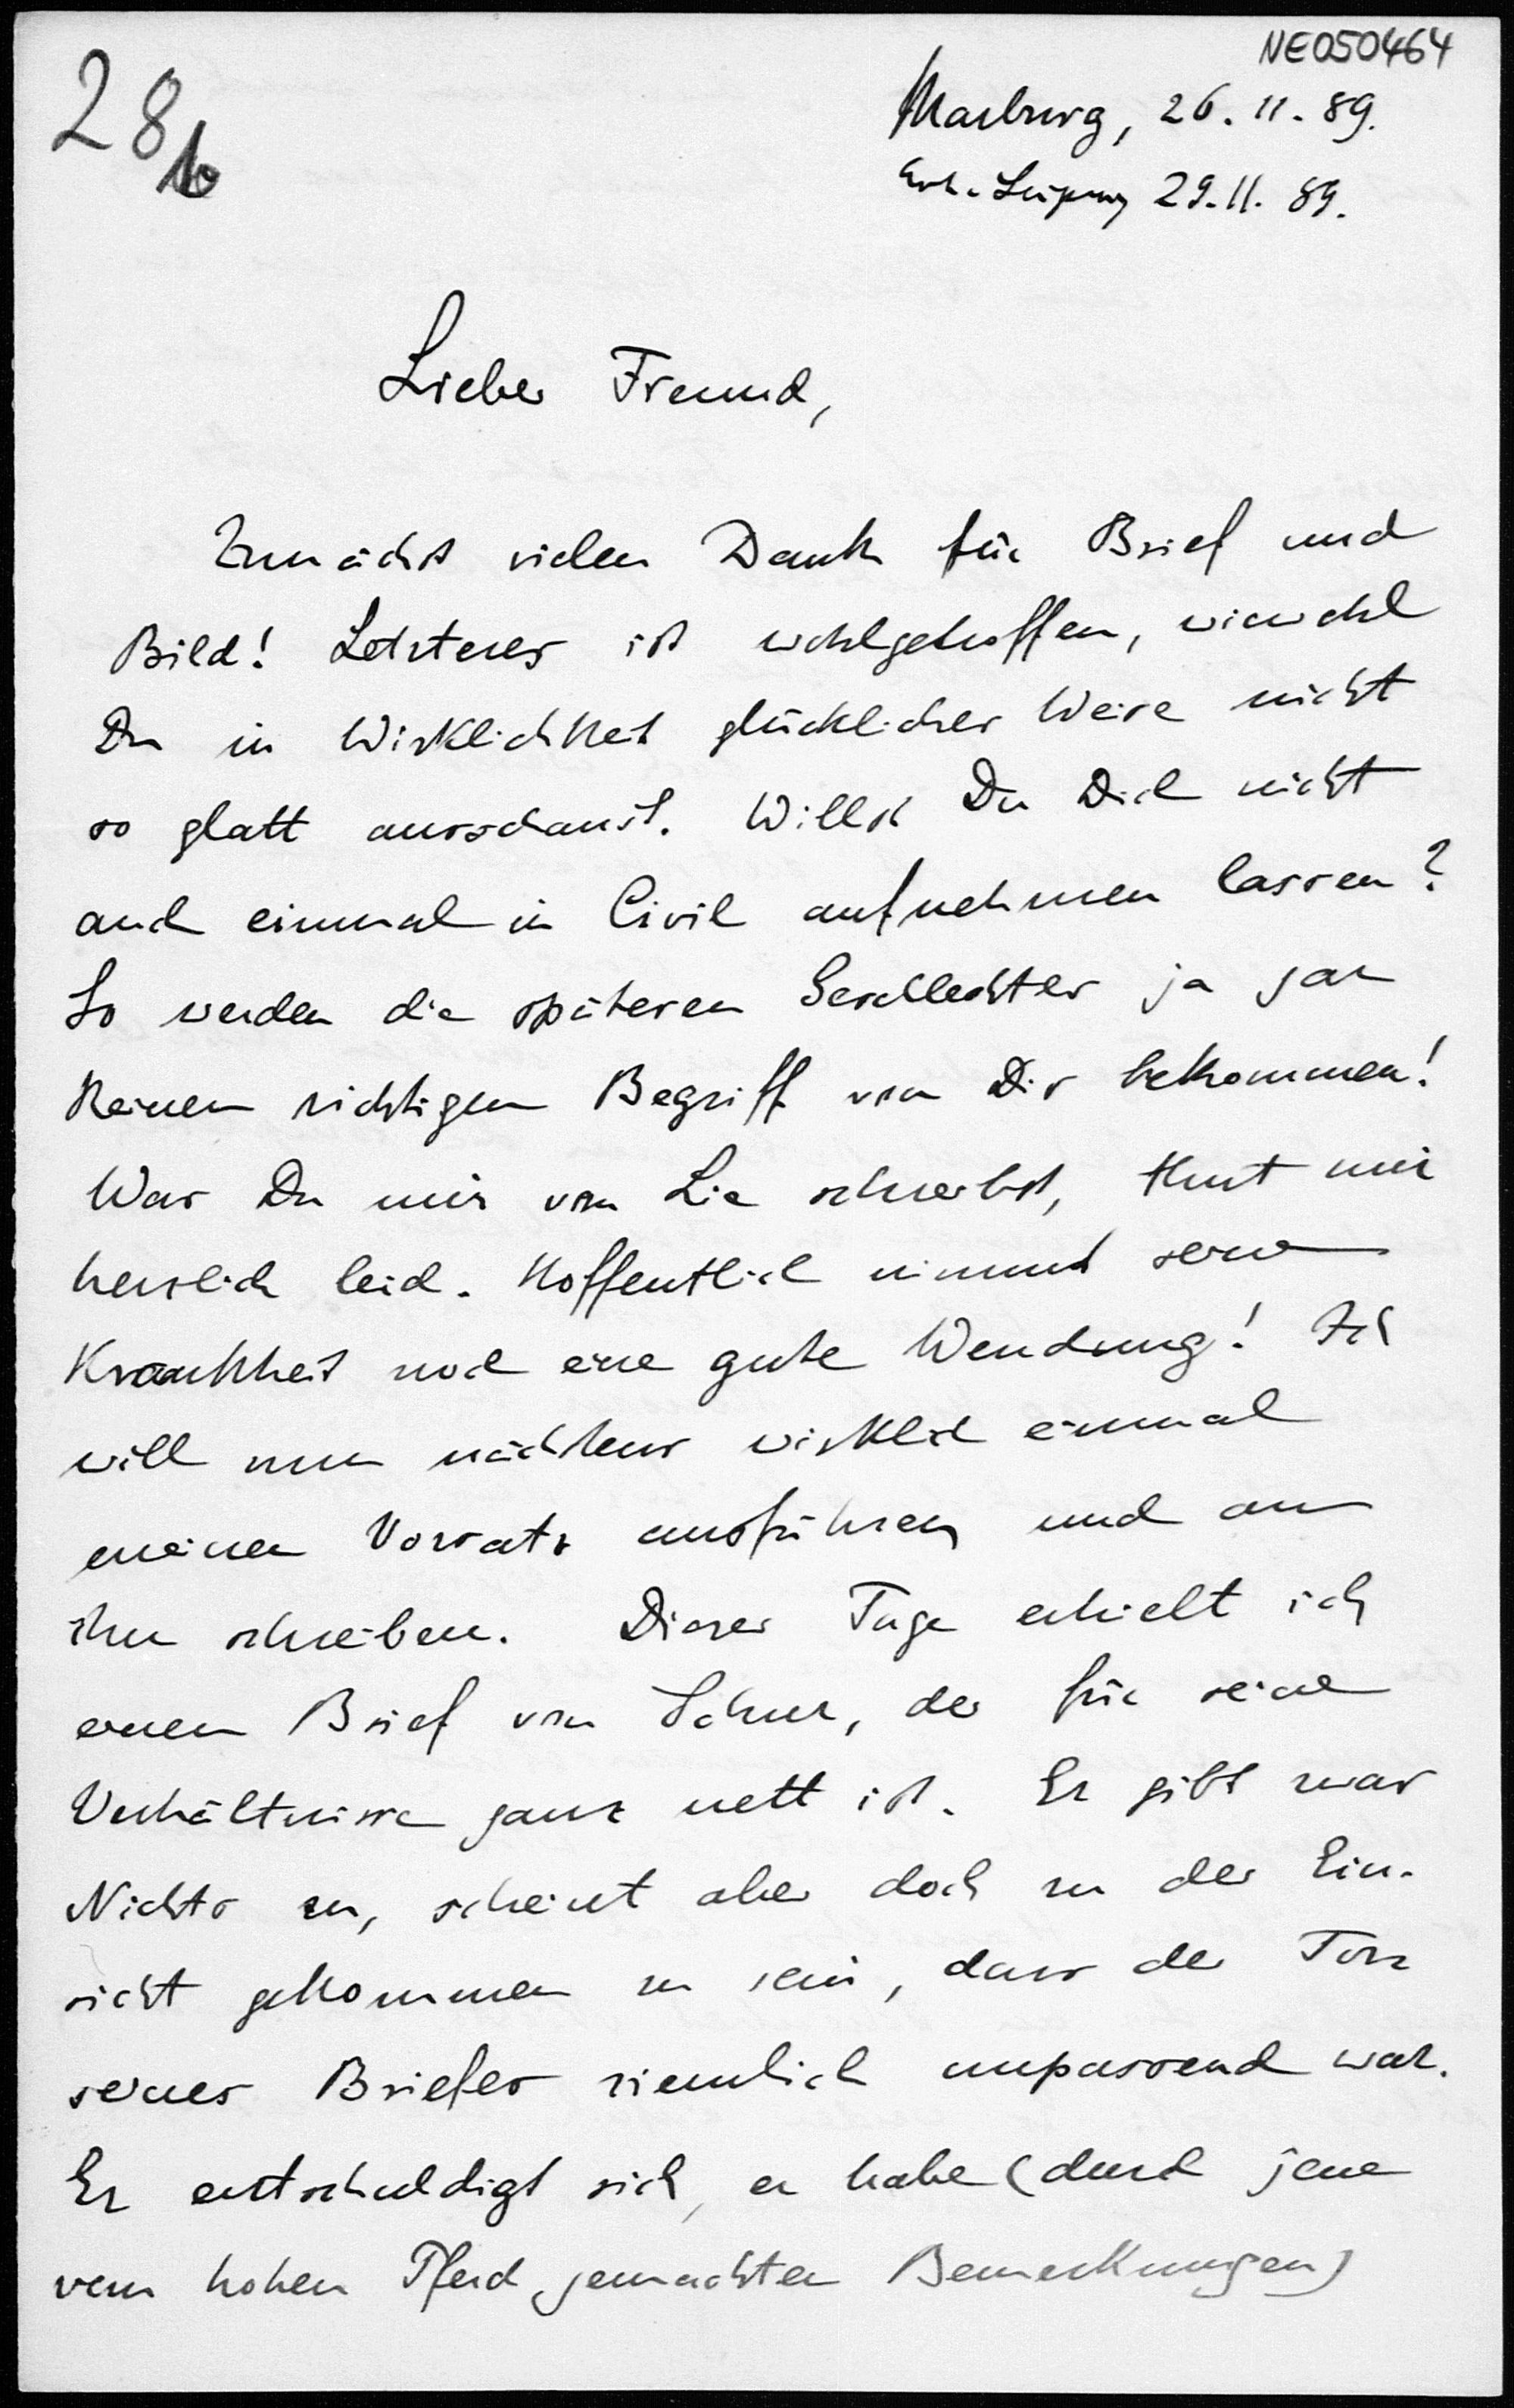 NE050464
28b
Marburg, 26. 11. 89.
Erh. Leipzig 29. 11. 89.
Lieber Freund,
Zunächst vielen Dank für Brief und
Bild! Letzteres ist wohlgetroffen, wiewohl
Du in Wirklichkeit glücklicher Weise nicht
so glatt ausschaust. Willst Du Dich nicht
auch einmal in Civil aufnehmen lassen?
So werden die späteren Geschlechter ja gar
keinen richtigen Begriff von Dir bekommen!
Was Du mir von Lie schreibst, thut mir
herzlich leid. Hoffentlich nimmt seine
Krankheit noch eine gute Wendung! Ich
will nun nächstens wirklich einmal
meinen Vorsatz ausführen und an
ihn schreiben. Dieser Tage erhielt ich
einen Brief von Schur, der für seine
Verhältnisse ganz nett ist. Er gibt zwar
Nichts zu, scheint aber doch zu der Ein-
sicht gekommen zu sein, dass der Ton
seines Briefes ziemlich unpassend war.
Er entschuldigt sich, er habe (durch jene
vom hohen Pferd gemachten Bemerkungen)